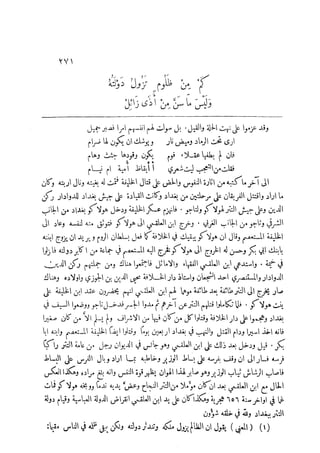 ٢٧١
كم من ظلوم تزول دولته
وليس ما سن من أذى زائل
وقد عزموا على نهب الحلة والنيل . بل سولت لهم انفسهم امرا فصبر جميل
ارى تحت الرماد وميض نار و يوشك ان يكون لها ضرام
فان لم يطفها عقلاء قوم يكون وقودها جثث وهام
فقلت من التعجب ليت شعري أأيقاظ أمية ام نيام
الى آخر ما كتبه من اثارة النفوس والحض على قتال الخليفة فتمت له بغيته ونال اربته وكان
ما اراد واقتتل الفريقان على مرحلتين من بغداد وكانت القيادة على جيش بغداد للدوادار ركن
الدين وعلى جيش التتر لهولاكو ولتاجو . فانهزم عسكر الخليفة ودخل هولاكو بغداد من الجانب
الشرقي وتاجو من الجانب الغربي . وخرج ابن العلقمي الى هولاكو فتوثق منه لنفسه وعاد الى
الخليفة المستعصم وقال ان هولاكو يبقيك في الخلافة كما فعل بسلطان الروم و يريد ان يزوج ابنته
بابنك ابي بكر وحسن له الخروج الى هولاكو فخرج اليه المستعصم في جماعة من اكابر دولته فانزلوا
في خيمة . واستدعى ابن العلقمي الفقهاء والاماثل فاجتمعوا هناك ومن جملتهم ركن الدين
الدوادار والمستنصري احد الشجعان واستاذ دار الخلافة محيي الدين بن الجوزي واولاده وهناك
صار يخرج الى التتر طائفة بعد طائفة موها لهم ابن العلقمي انهم يحضرون عقد ابن الخليفة على
بنت هولاكو . فلما تكاملوا قتلهم التتر عن آخرهم ثم مدوا الجسر فدخل تاجو ووضعوا السيف في
بغداد وهجموا على دار الخلافة وقتلوا كل من كان فيها من الاشراف ولم يسلم الا من كان صغيرا
فانه اخذ اسيرا ودام القتل والنهب في بغداد اربعين يوما وقتلوا ايضا الخليفة المستعصم وابنه ابا
بكر . قيل ودخل بعد ذلك على ابن العلقمي وهو جالس في الديوان رجل من عامة التتر راكبا
فرسه فسار الى ان وقف بفرسه على بساط الوزير وخاطبه بما اراد وبال الفرس على البساط
فاصاب الرشاش ثياب الوزير وهو صابر لهذا الهوان يظهر قوة النفس وانه بلغ مراده وهكذا انعكس
الحال مع ابن العلقمي بعد ان كان مؤملا من التتر النجاح وعض يديه ندما ووبخه هولاكو فمات
غما في اواخر سنة ٦٥٦ هجرية وهكذا كان على يد ابن العلقمي انقراض الدولة العباسية وقيام دولة
التتر ببغداد ولله في خلقه شؤون
(١) (المعنى) يقول ان الظالم يزول ملكه وتندثر دولته ولكن يبقى ظلمه في الناس مقيما .